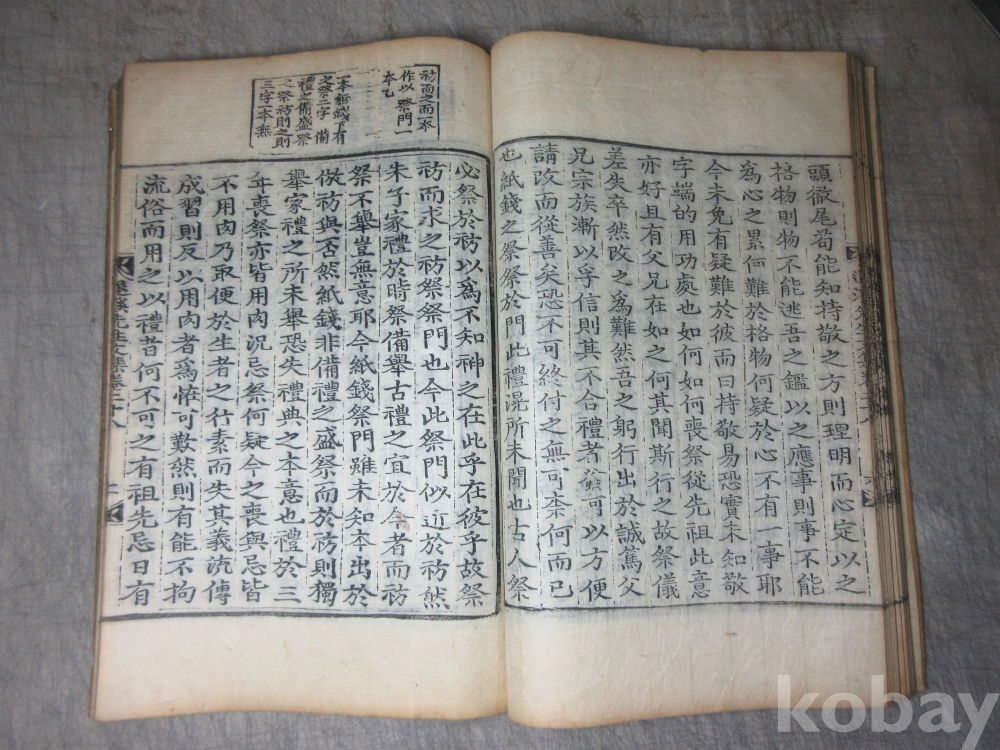 頭徹尾苟能知持敬之方則理明而心定以之
格物則物不能逃吾之鑑以之應事則事不能
爲心之累何難於格物何疑於心不有一事耶
今未免有疑難於彼而曰持敬易恐實未知敬
字端的用功處也如何如何喪祭從先祖此意
亦好且有父兄在如之何其聞斯行之故祭儀
差失卒然改之爲難然吾之躬行出於誠篤父
兄宗族漸以孚信則其不合禮者可以方便
請改而從善矣恐不可終付之無可柰何而已
也紙錢之祭祭於門此禮滉所未聞也古人祭
祊而之而一本
作以祭門一
本乙
一本紙錢下有
之祭二字備
禮之備盛祭
之祭祊則之則
三字一本無
必祭於祊以爲不知神之在此乎在彼乎故祭
祊而求之祊祭祭門也今此祭門似近於祊然
朱子家禮於時祭備擧古禮之宜於今者而祊
祭不擧豈無意耶今紙錢祭門雖未知本出於
倣祊與否然紙錢非備禮之盛祭而於祊則獨
擧家禮之所未擧恐失禮典之本意也禮於三
年喪祭亦皆用肉況忌祭何疑今之喪與忌皆
不用肉乃取便於生者之行素而失其義流傳
成習則反以用肉者爲恠可歎然則有能不拘
流俗而用之以禮者何不可之有祖先忌日有
退溪先生文集卷三十八